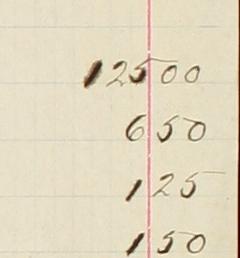 12500
650
125
150